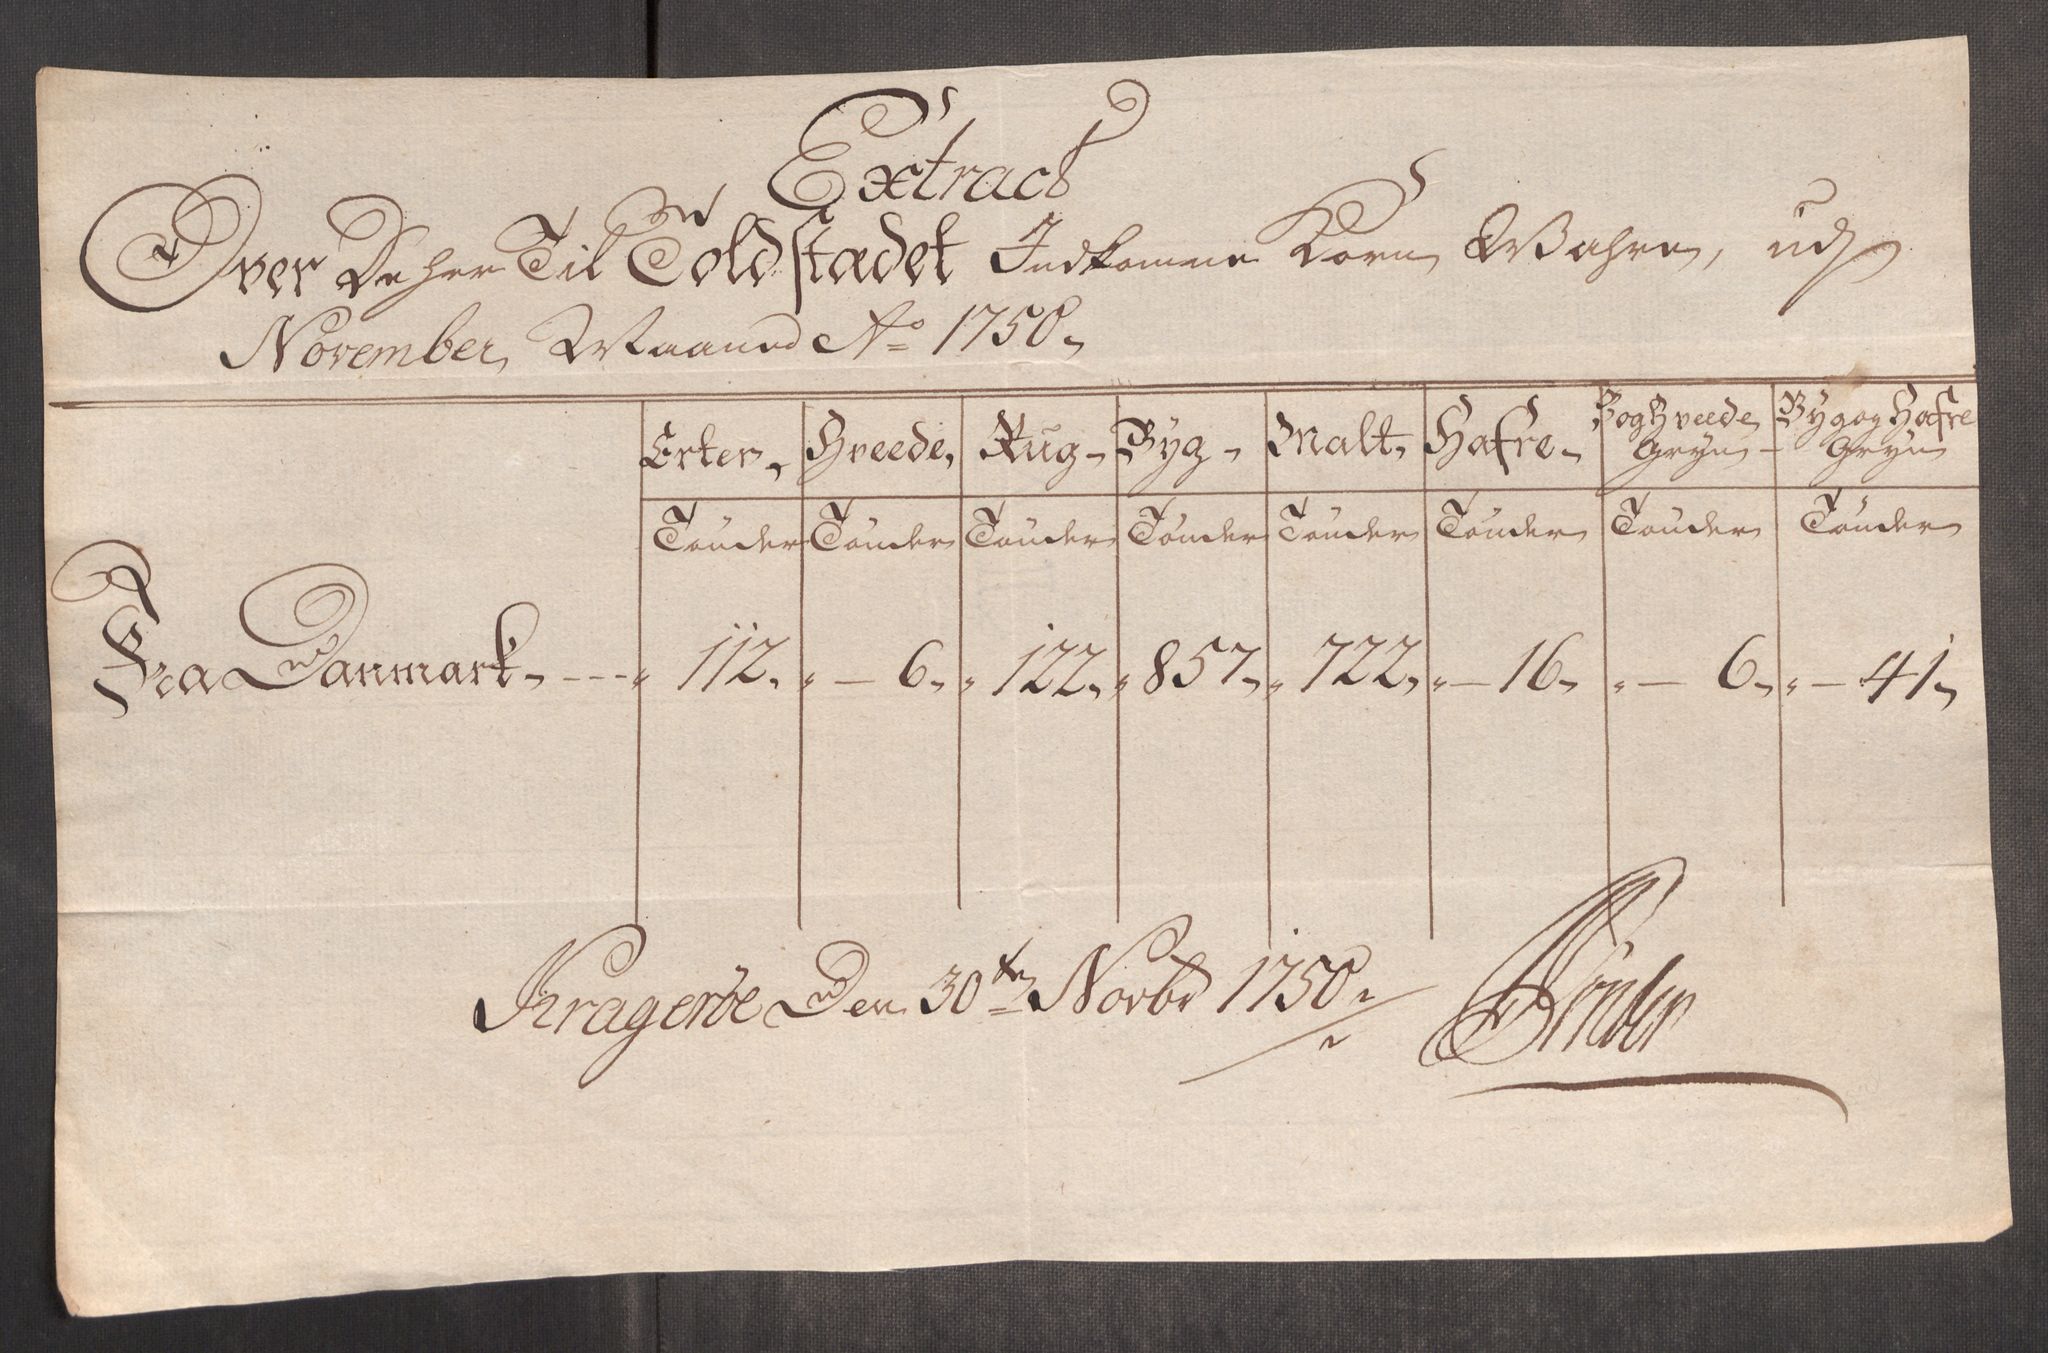 Extract
Over De her Til Toldstædet Indkomne Korn Wahre, udj
November Maaned Ao 1750,
Erter, Hveede, Rug, Byg, Malt, Hafre, BogHveede Gryn, Byg og Hafre Gryn
Tønder Tønder Tønder Tønder Tønder Tønder Tønder Tønder
Fra Danmark, --- " 112, " — 6, " 122, " 857, " 722, " — 16, " — 6, " — 41,
Kragerøe Den 30te Novbr 1750,